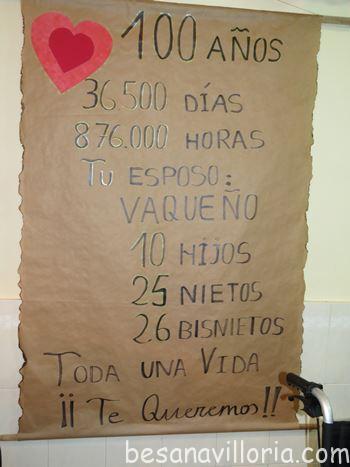 100 AÑOS
36.500 DÍAS
876.000 HORAS
TU ESPOSO:
VAQUEÑO
10 HIJOS
25 NIETOS
26 BISNIETOS
TODA UNA VIDA
¡¡ Te Queremos!!
besanavilloria.com